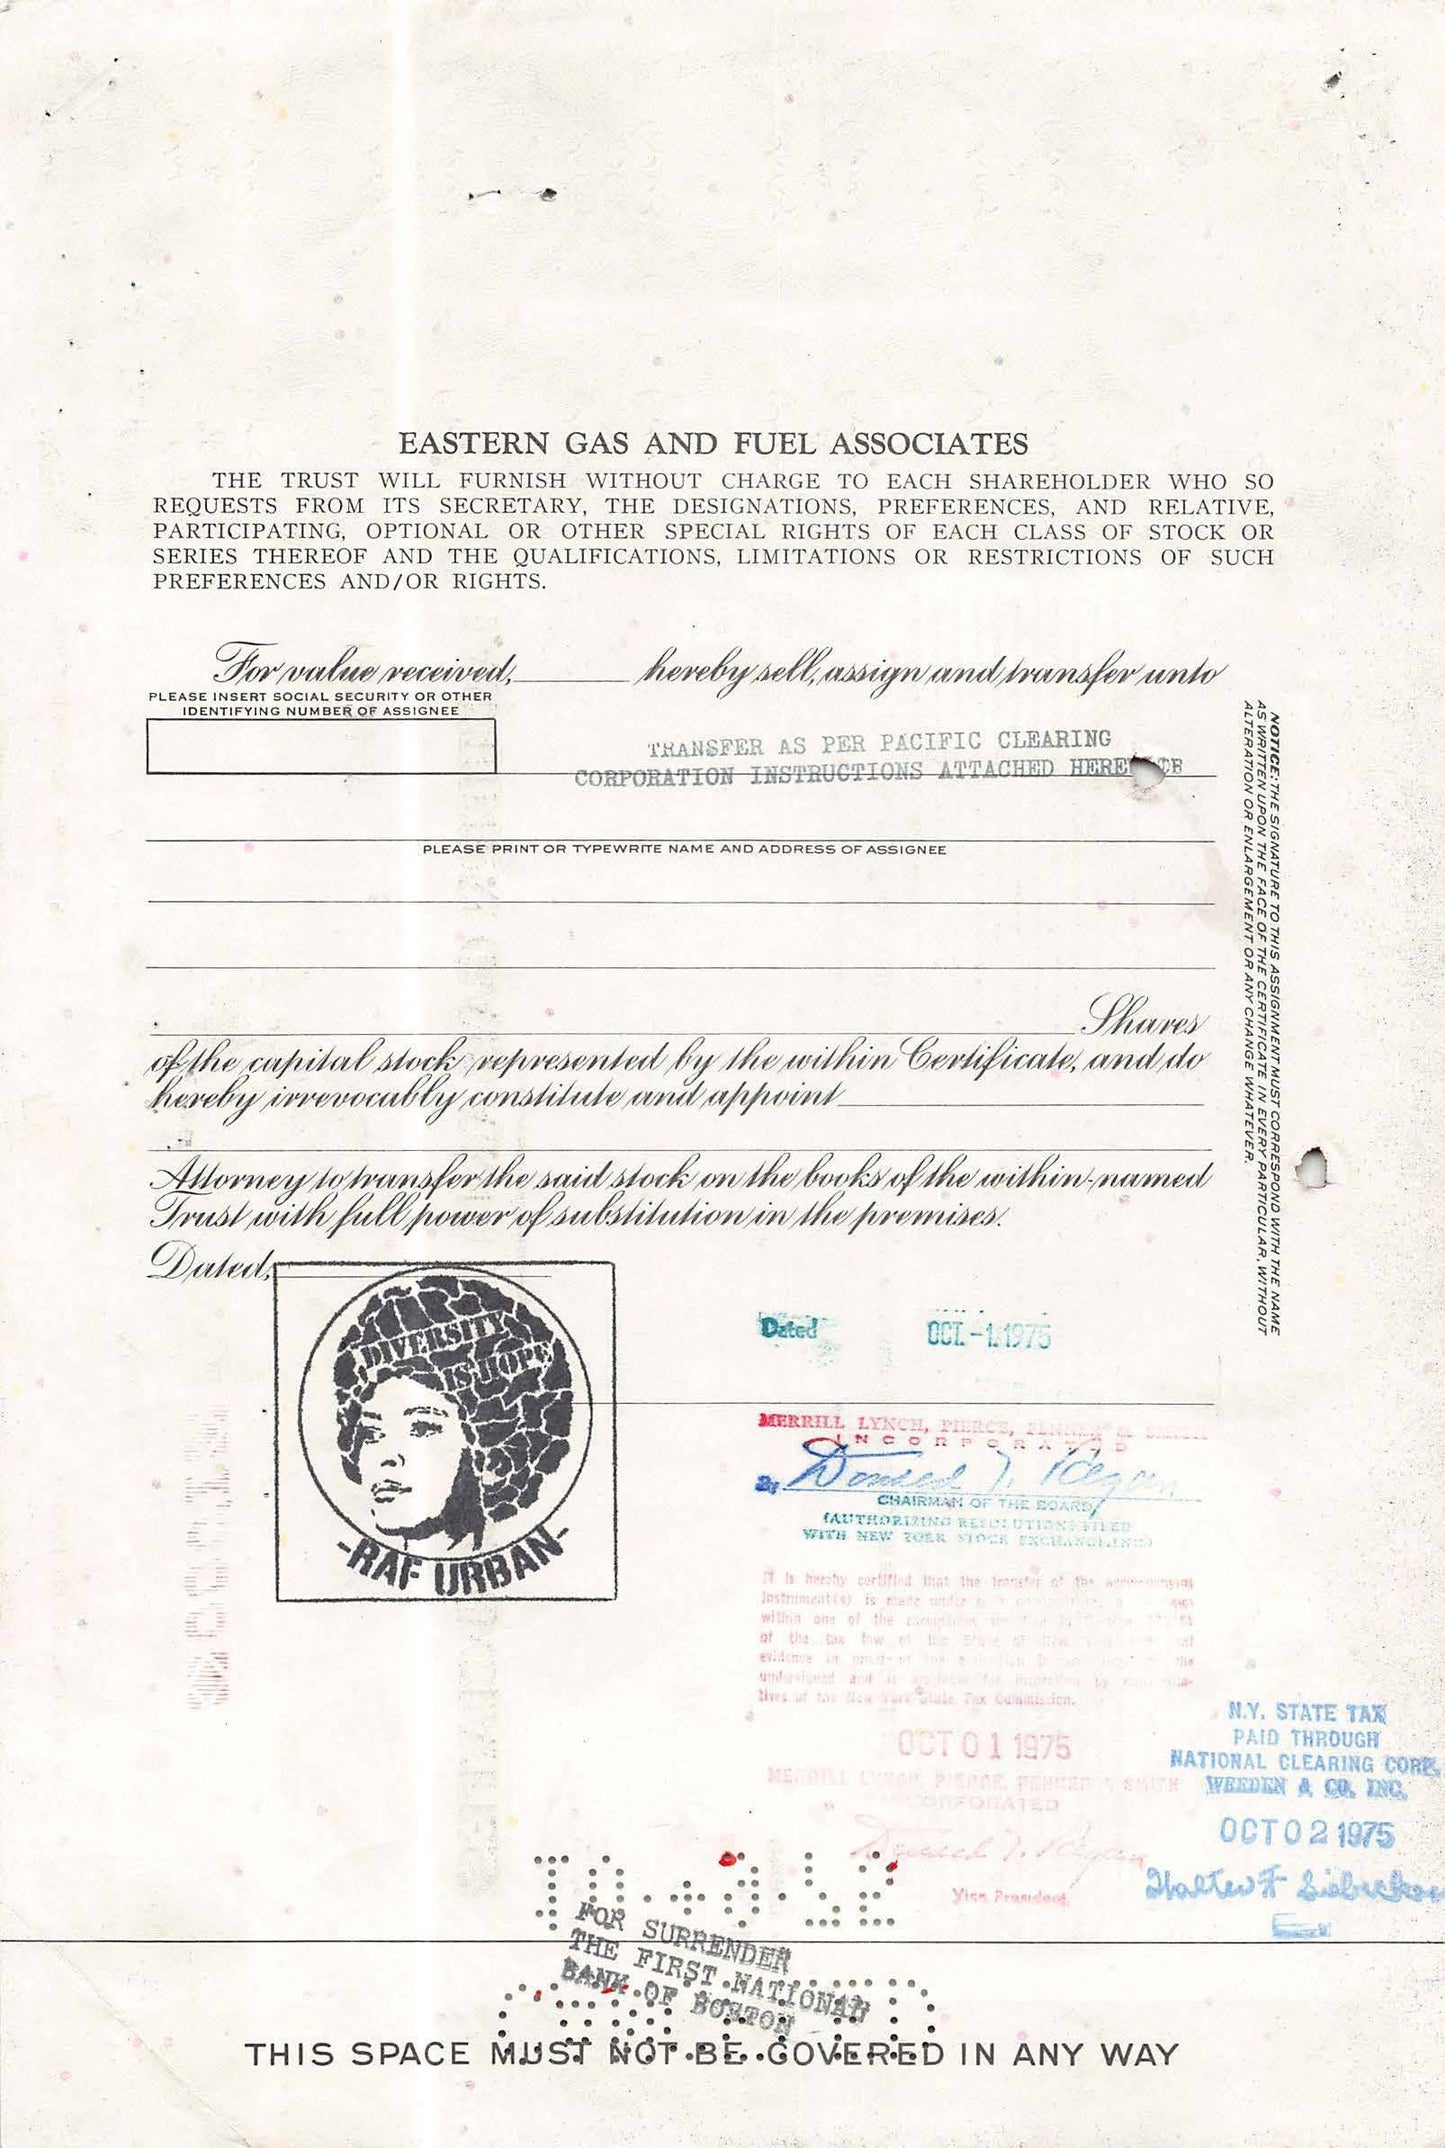 EASTERN GAS AND FUEL ASSOCIATES
THE TRUST WILL FURNISH WITHOUT CHARGE TO EACH SHAREHOLDER WHO SO
REQUESTS FROM ITS SECRETARY, THE DESIGNATIONS, PREFERENCES, AND RELATIVE,
PARTICIPATING, OPTIONAL OR OTHER SPECIAL RIGHTS OF EACH CLASS OF STOCK OR
SERIES THEREOF AND THE QUALIFICATIONS, LIMITATIONS OR RESTRICTIONS OF SUCH
PREFERENCES AND/OR RIGHTS.
For value received, hereby sell, assign and transfer unto
PLEASE INSERT SOCIAL SECURITY OR OTHER
IDENTIFYING NUMBER OF ASSIGNEE
TRANSFER AS PER PACIFIC CLEARING
CORPORATION INSTRUCTIONS ATTACHED
PLEASE PRINT OR TYPEWRITE NAME AND ADDRESS OF ASSIGNEE
Shares
of the capital stock represented by the within Certificate, and do
hereby irrevocably constitute and appoint
Attorney to transfer the said stock on the books of the within-named
Trust with full power of substitution in the premises.
Dated,
NOTICE: THE SIGNATURE TO THIS ASSIGNMENT MUST CORRESPOND WITH THE NAME
AS WRITTEN UPON THE FACE OF THE CERTIFICATE IN EVERY PARTICULAR, WITHOUT
ALTERATION OR ENLARGEMENT OR ANY CHANGE WHATEVER.
DIVERSITY
IS HOPE
-RAF URBAN-
Dated OCT -1 1975
MERRILL LYNCH, PIERCE,
INCORPORATED
By Donald T. Regan
CHAIRMAN OF THE BOARD
(AUTHORIZING RESOLUTIONS FILED
WITH NEW YORK STOCK EXCHANGE
It is hereby certified that the transfer of the
instrument(s) is made
within one of the
of the tax law of the State of
evidence
undersigned and
tives of the New York State Tax Commission.
OCT 01 1975
MERRILL LYNCH, PIERCE, FENNER & SMITH
INCORPORATED
Donald T. Regan
Vice President
N.Y. STATE TAX
PAID THROUGH
NATIONAL CLEARING CORP.
WEEDEN & CO. INC.
OCT 02 1975
Walter F
FOR SURRENDER
THE FIRST NATIONAL
BANK OF BOSTON
THIS SPACE MUST NOT BE COVERED IN ANY WAY